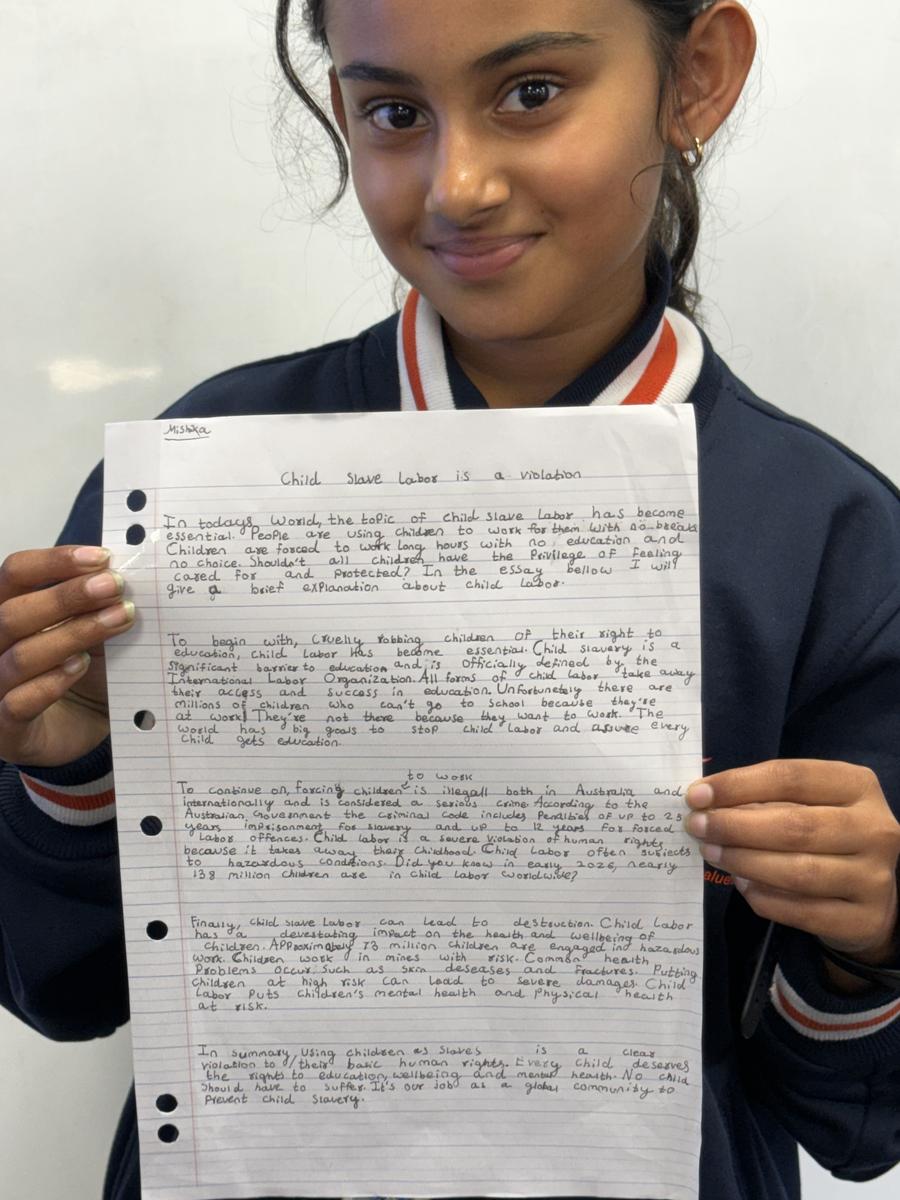 Mishka
Child Slave Labor is a violation
In todays world, the topic of child slave labor has become
essential. People are using children to work for them with no breaks
Children are forced to work long hours with no education and
no choice. Shouldn't all children have the privilege of feeling
cared for and protected? In the essay bellow I will
give a brief explanation about child labor.
To begin with, cruelly robbing children of their right to
education, child labor has become essential. Child slavery is a
significant barrier to education and is officially defined by the
International Labor Organization. All forms of child labor take away
their access and success in education. Unfortunately there are
millions of children who can't go to school because they're
at work! They're not there because they want to work. The
world has big goals to stop child labor and assure every
child gets education.
to work
To continue on, forcing children is illegall both in Australia and
internationally and is considered a serious crime. According to the
Australian Government the Criminal Code includes penalties of up to 25
years imprisonment for slavery and up to 12 years for forced
labor offences. Child labor is a severe violation of human rights
because it takes away their childhood. Child labor often subjects
to hazardous conditions. Did you know in early 2026, nearly
138 million children are in child labor worldwide?
Finally, child slave labor can lead to destruction. Child labor
has a devestating impact on the health and wellbeing of
children. Approximately 73 million children are engaged in hazardous
work. Children work in mines with risk. Common health
problems occur such as skin deseases and fractures. Putting
children at high risk can lead to severe damages. Child
labor puts children's mental health and physical health
at risk.
In summary, using children as slaves is a clear
violation to their basic human rights. Every child deserves
the rights to education, wellbeing and mental health. No child
should have to suffer. It's our job as a global community to
prevent child slavery.